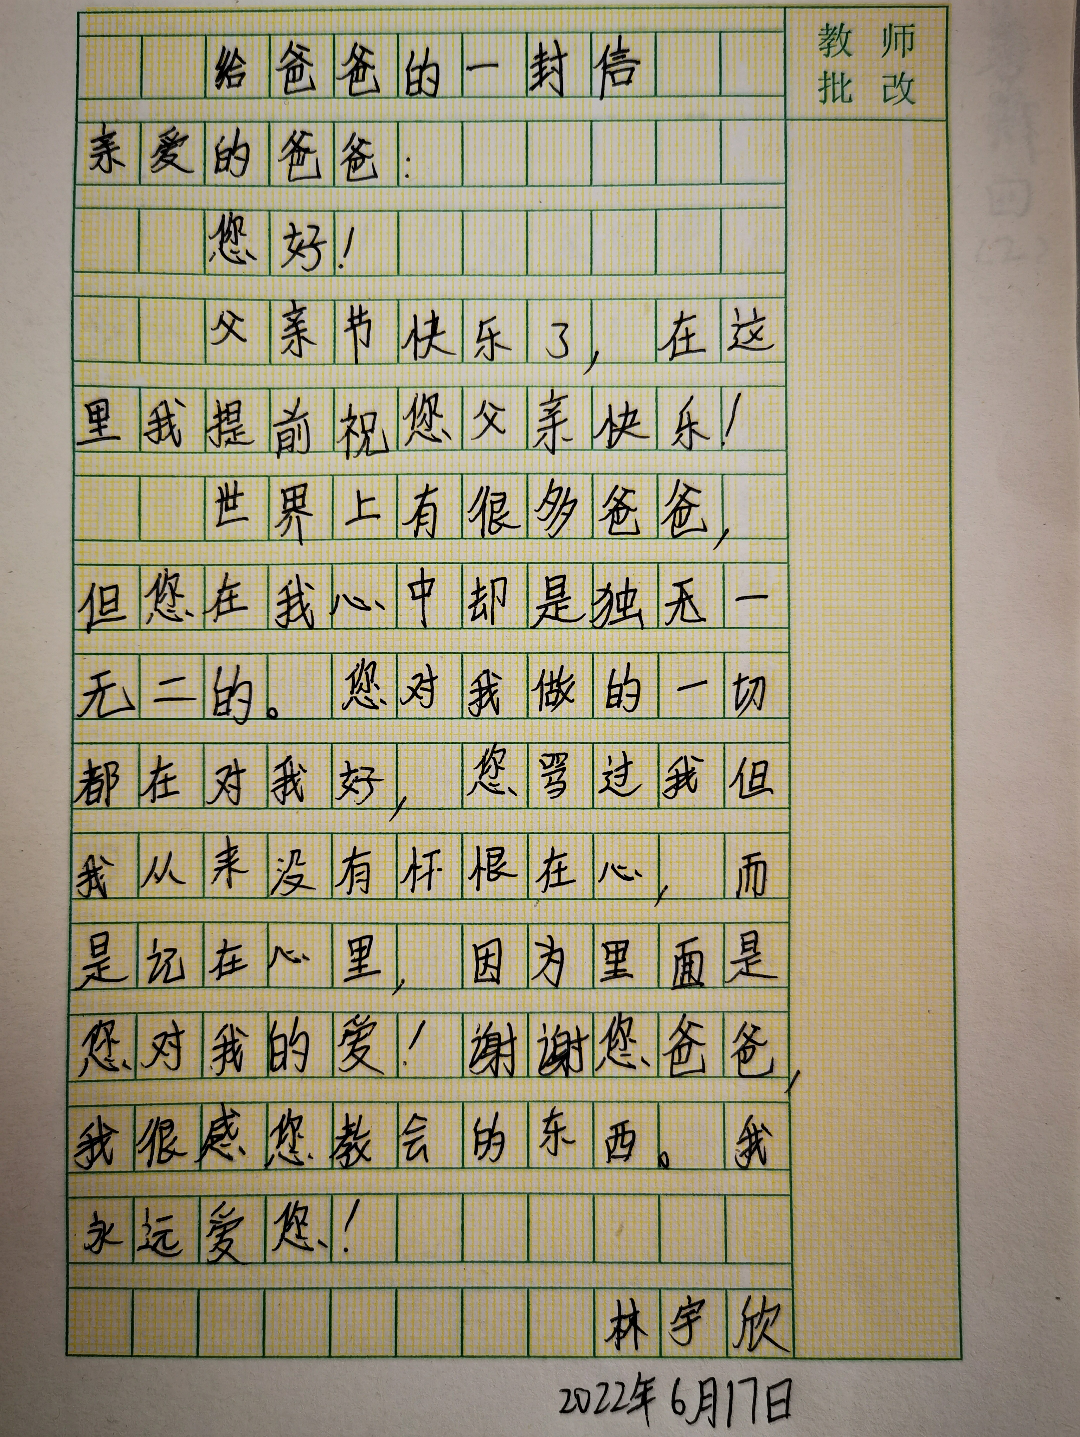 教师
批改
给爸爸的一封信
亲爱的爸爸：
您好！
父亲节快乐了，在这
里我提前祝您父亲快乐！
世界上有很多爸爸，
但您在我心中却是独无一
无二的。您对我做的一切
都在对我好，您骂过我但
我从来没有怀恨在心，而
是记在心里，因为里面是
您对我的爱！谢谢您爸爸，
我很感您教会的东西。我
永远爱您！
林宇欣
2022年6月17日